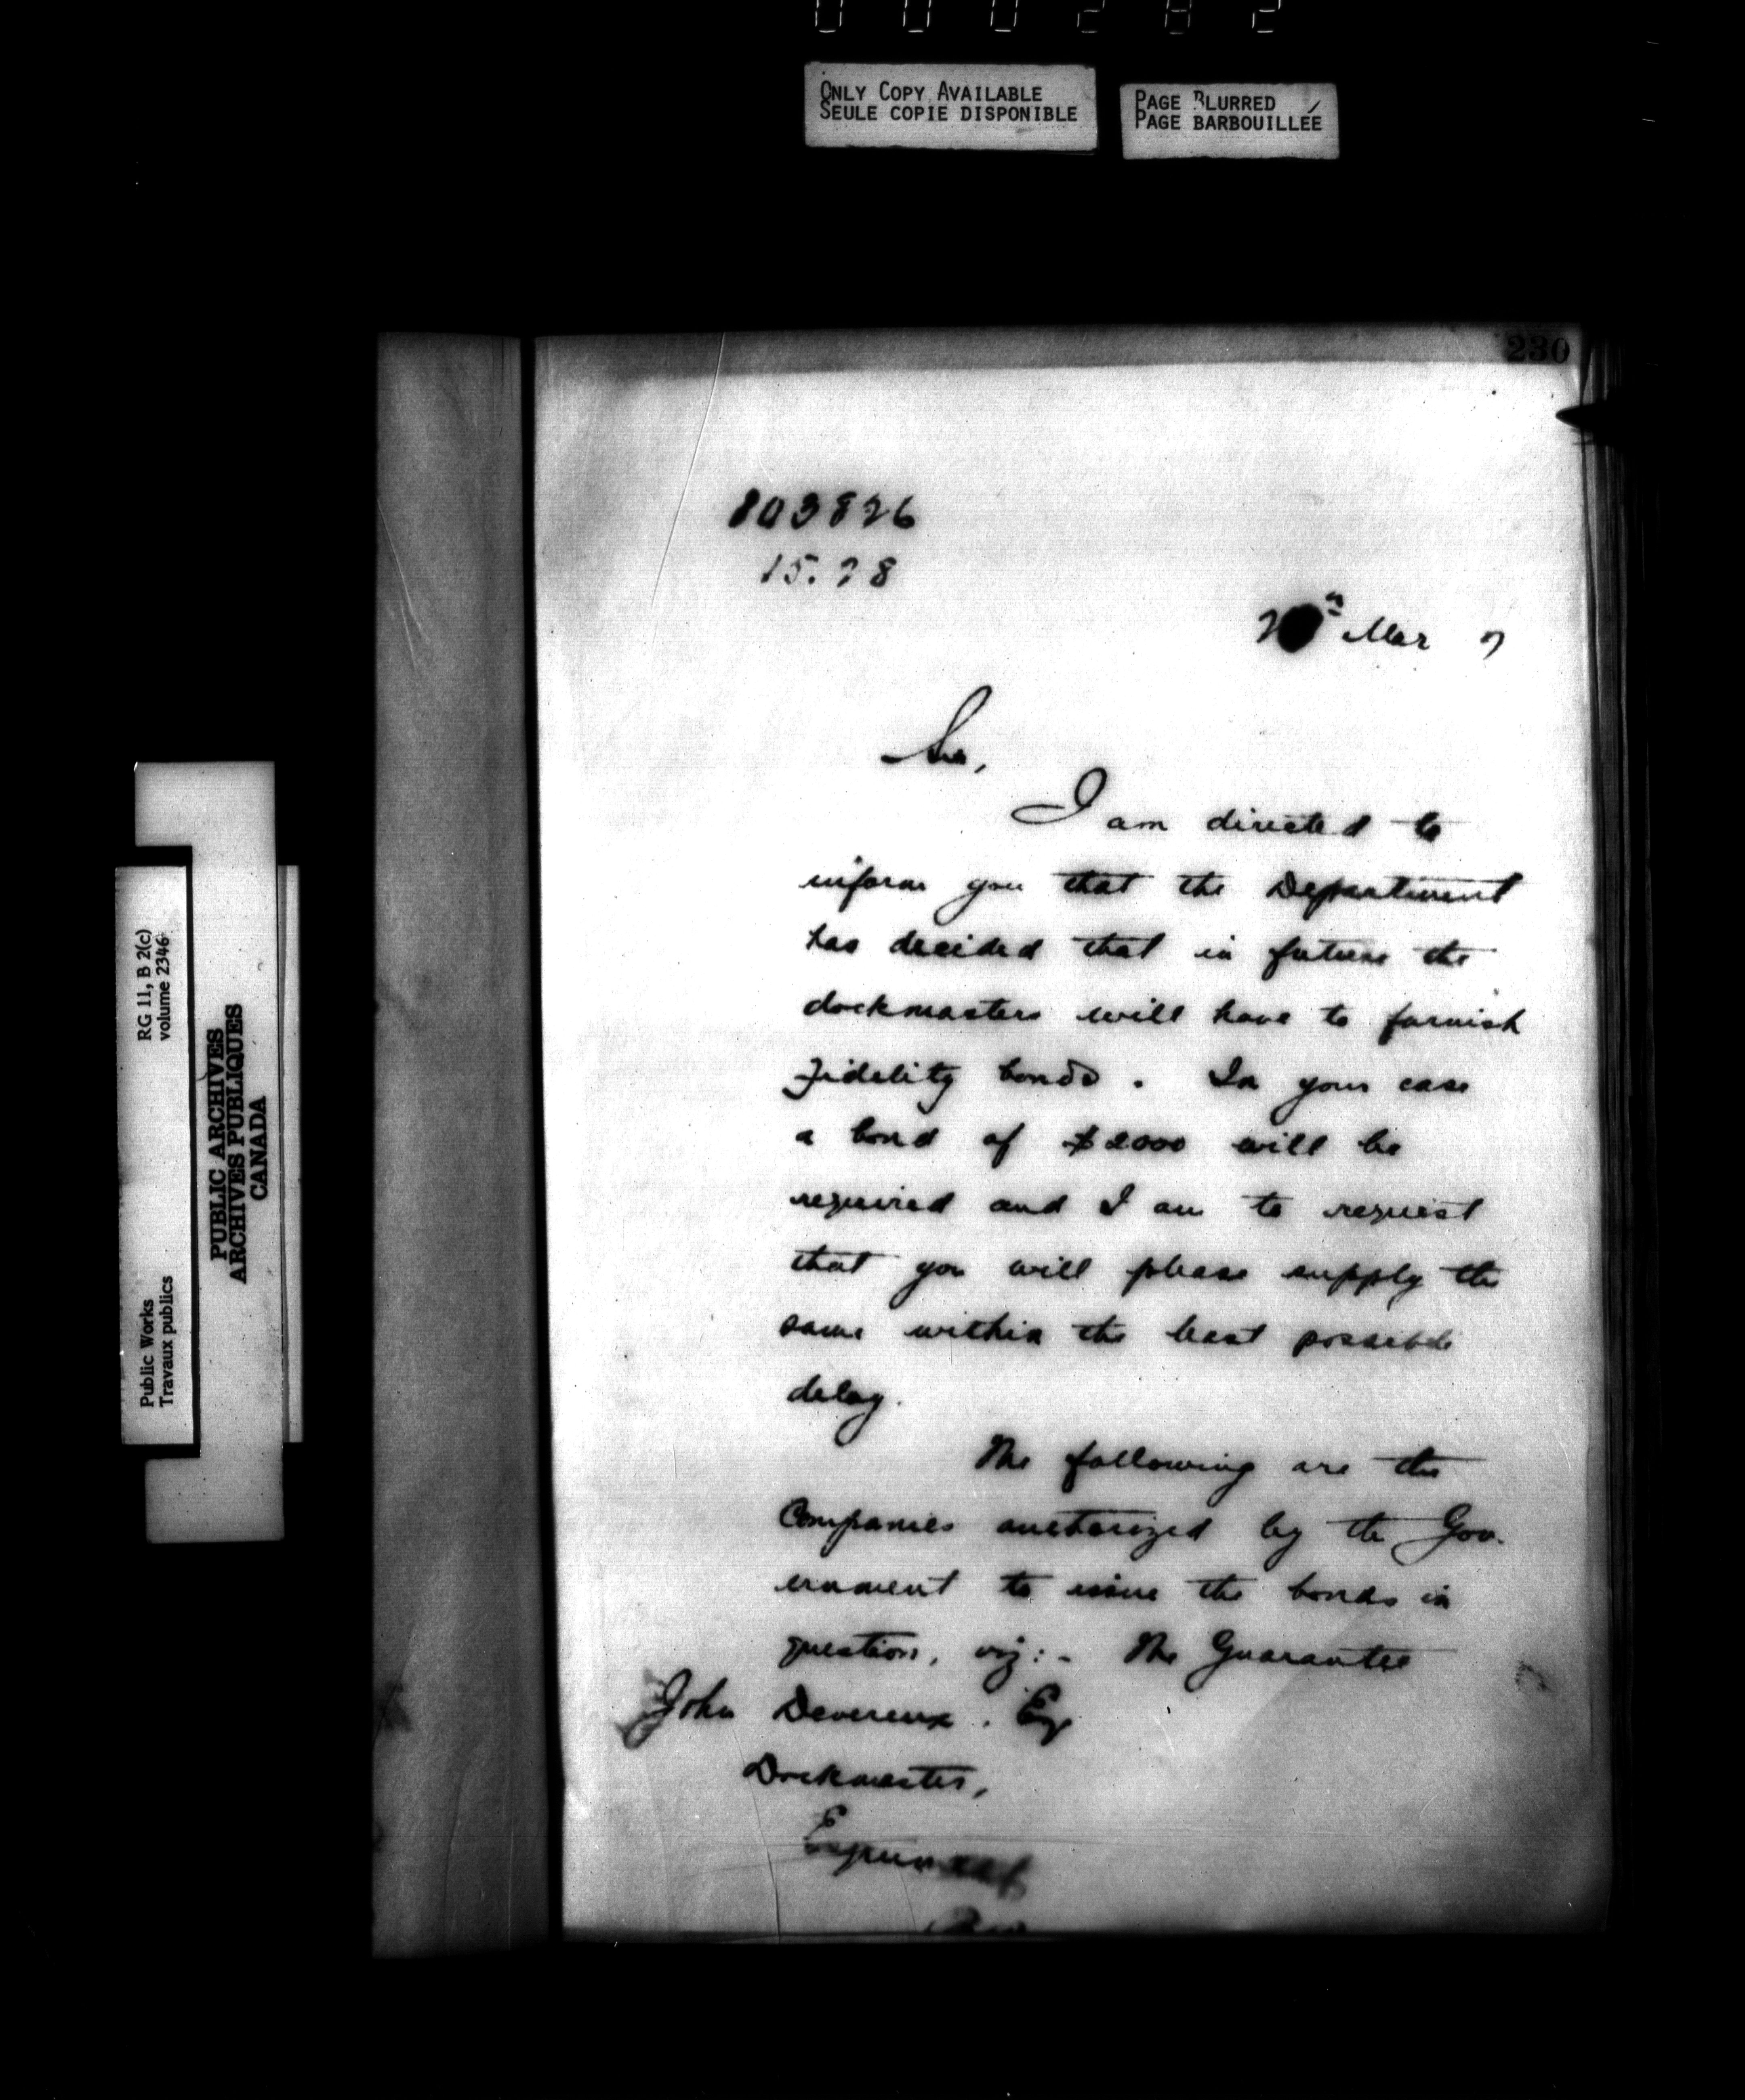 000282
ONLY COPY AVAILABLE
SEULE COPIE DISPONIBLE
PAGE BLURRED
PAGE BARBOUILLÉE
230
103826
15.28
Mar 7
Sir,
I am directed to
inform you that the Department
has decided that in future the
dockmasters will have to furnish
Fidelity bonds. In your case
a bond of $2000 will be
required and I am to request
that you will please supply the
same within the least possible
delay.
The following are the
Companies authorized by the Gov-
ernment to issue the bonds in
question, viz:- The Guarantee
John Devereux. Esq
Dockmaster,
Esquimalt
RG 11, B 2(c)
volume 2346
Public Works
Travaux publics
PUBLIC ARCHIVES
ARCHIVES PUBLIQUES
CANADA